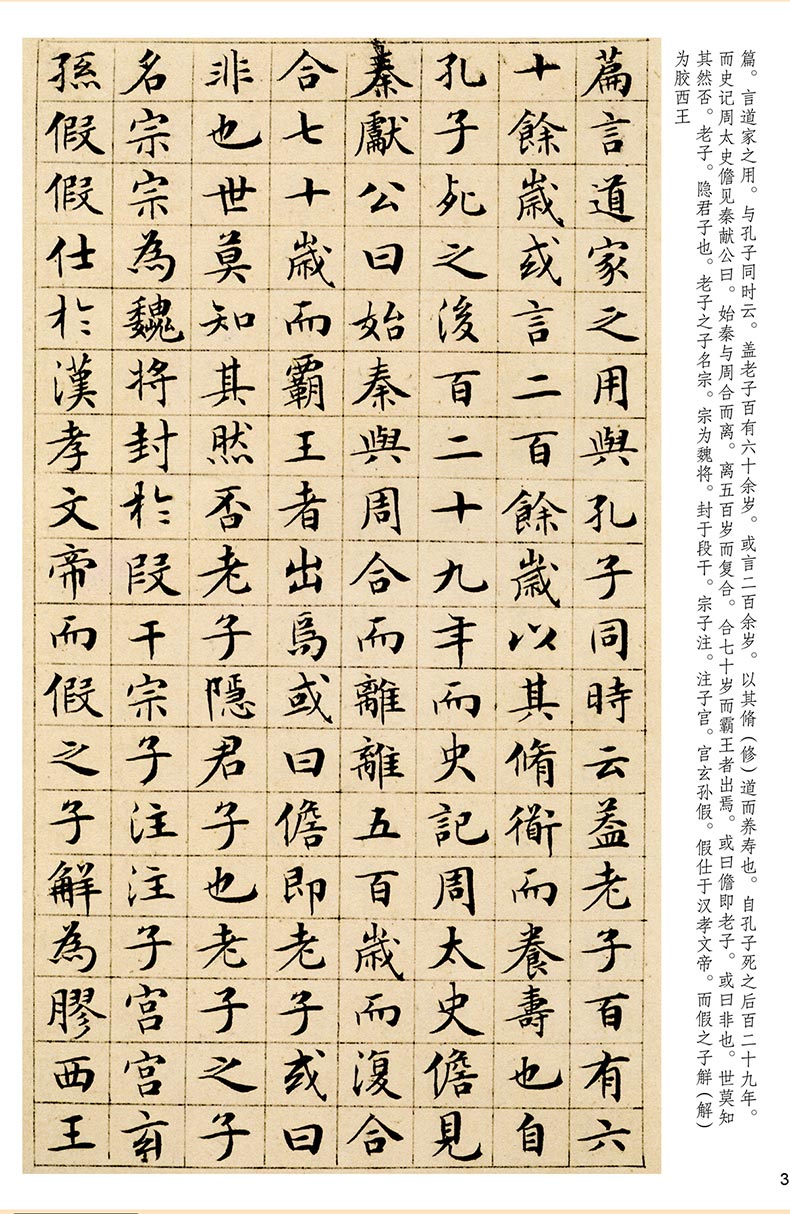 篇。言道家之用。与孔子同时云。盖老子百有六十余岁。或言二百余岁。以其脩（修）道而养寿也。自孔子死之后百二十九年。
而史记周太史儋见秦献公曰。始秦与周合而离。离五百岁而复合。合七十岁而霸王者出焉。或曰儋即老子。或曰非也。世莫知
其然否。老子。隐君子也。老子之子名宗。宗为魏将。封于段干。宗子注。注子宫。宫玄孙假。假仕于汉孝文帝。而假之子觧（解）
为胶西王
篇言道家之用與孔子同時云葢老子百有六
十餘歲或言二百餘歲以其脩衜而養壽也自
孔子死之後百二十九年而史記周太史儋見
秦獻公曰始秦與周合而離離五百歲而復合
合七十歲而霸王者出焉或曰儋即老子或曰
非也世莫知其然否老子隱君子也老子之子
名宗宗為魏將封於段干宗子注注子宮宮玄
孫假假仕於漢孝文帝而假之子觧為膠西王
3